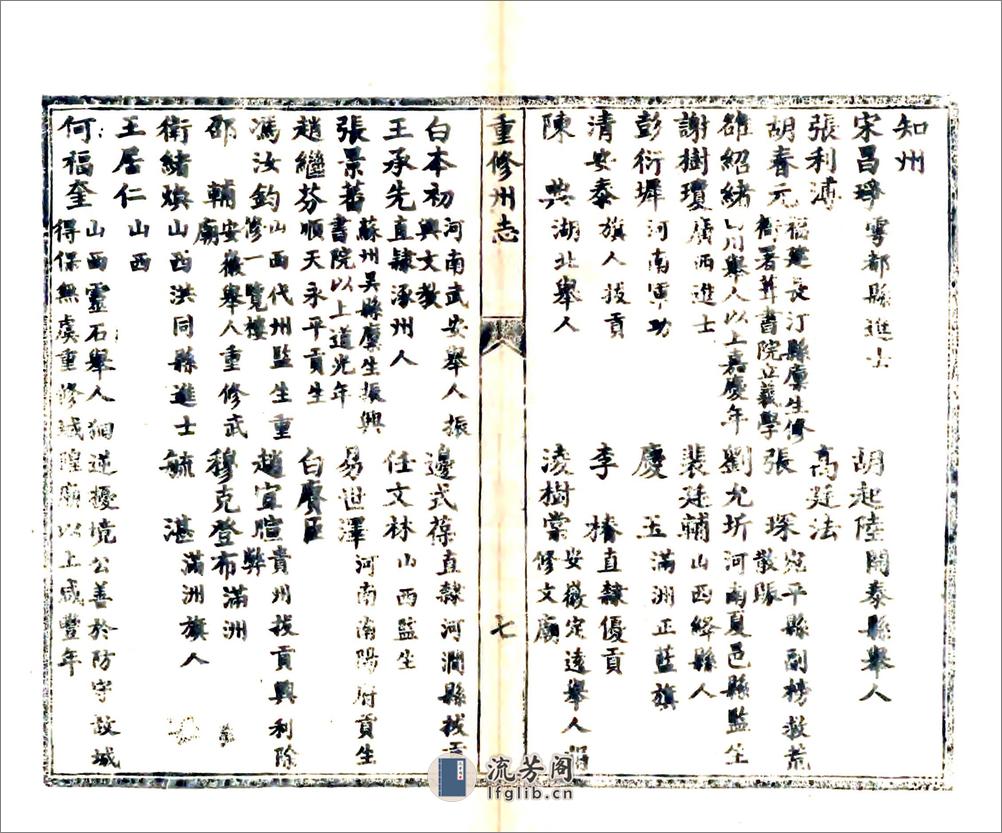 知州
宋昌琤 雩都縣進士 胡起陸 開泰縣舉人
張利溥 高廷法
胡春元 福建長汀縣廩生修衙署葺書院立義學 張琛 宛平縣副榜救荒散賑
雒紹緒 四川舉人以上嘉慶年 劉允圻 河南夏邑縣監生
謝樹瓊 廣西進士 裴廷輔 山西絳縣人
彭衍墀 河南軍功 慶玉 滿洲正藍旗
清安泰 旗人拔貢 李椿 直隸優貢
陳 湖北舉人 凌樹棠 安徽定遠舉人 修文廟
重修州志 七
白本初 河南武安舉人振興文教 邊式葆 直隸河澗縣拔貢
王承先 直隸涿州人 任文林 山西監生
張景蓍 蘇州吳縣廩生振興書院以上道光年 易世澤 河南南陽府貢生
趙繼芬 順天永平貢生 白賡臣
馮汝鈞 山西代州監生重修一覽樓 趙宜暄 貴州拔貢興利除弊
邵輔 安徽舉人重修武廟 穆克登布 滿洲
衛緒煥 山西洪同縣進士 毓湛 滿洲旗人
王居仁 山西
何福奎 山西靈石舉人 逆擾境公善於防守故城得保無虞重修城隍廟以上咸豐年
流芳阁
lfglib.cn